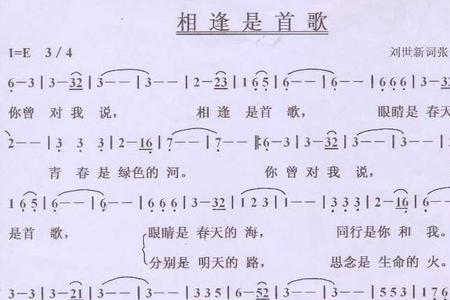 相逢是首歌
1=E 3/4 刘世新词张
6—3|3—32|3——|3——|2—23|165|6——|6——|666|3—32
你曾 对我 说， 相逢 是首 歌， 眼睛是 春天
2——|3 3 3|2—16|7——|7——|6—3|3—32|3——|3——
青春是 绿色的 河。 你曾 对我 说，
165|6——|6——|666|3—32|123|1——|333|2—16|6——
是首 歌， 眼睛是 春天的 海， 同行是 你和 我。
分别是 明天的 路， 思念是 生命的 火。
3——|3—21|3——|3——|335|6—52|3——|3——|535